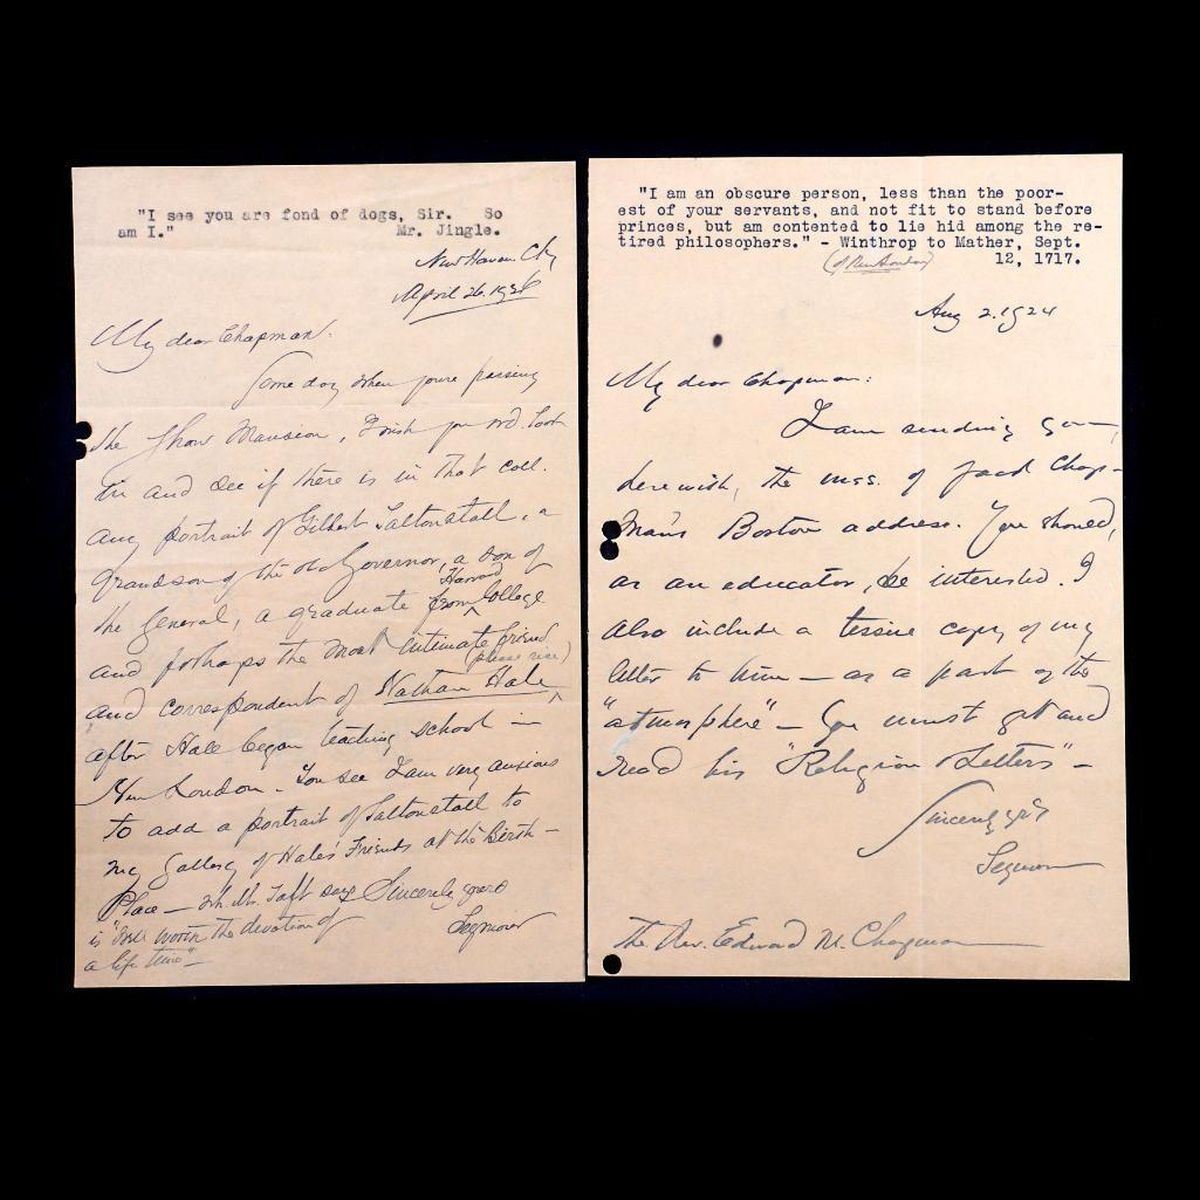 "I see you are fond of dogs, Sir. So
am I." Mr. Jingle.
New Haven City
April 26. 1926
My dear Chapman.
Some day when you're passing
the Shaw Mansion, I wish you wd. look
in and see if there is in that coll.
any portrait of Gilbert Saltonstall, a
grandson of the old Governor, a son of
the General, a graduate from Harvard College
and perhaps the most intimate friend
(please rise)
and correspondent of Nathan Hale
after Hale began teaching school in
New London. You see I am very anxious
to add a portrait of Saltonstall to
my Gallery of Hale's Friends at the Birth-
Place — wh. Mr. Taft says Sincerely yours
is "well worth the devotion of Seymour
a life time"—
"I am an obscure person, less than the poor-
est of your servants, and not fit to stand before
princes, but am contented to lie hid among the re-
tired philosophers." - Winthrop to Mather, Sept.
(of New London) 12, 1717.
Aug 2. 1924
My dear Chapman:
I am sending you,
herewith, the mss. of Jack Chap-
man's Boston address. You should,
as an educator, be interested. I
also include a tissue copy of my
letter to him — as a part of the
"atmosphere" — You must get and
read his "Religion & Letters" —
Sincerely yrs
Seymour
The Rev. Edward M. Chapman